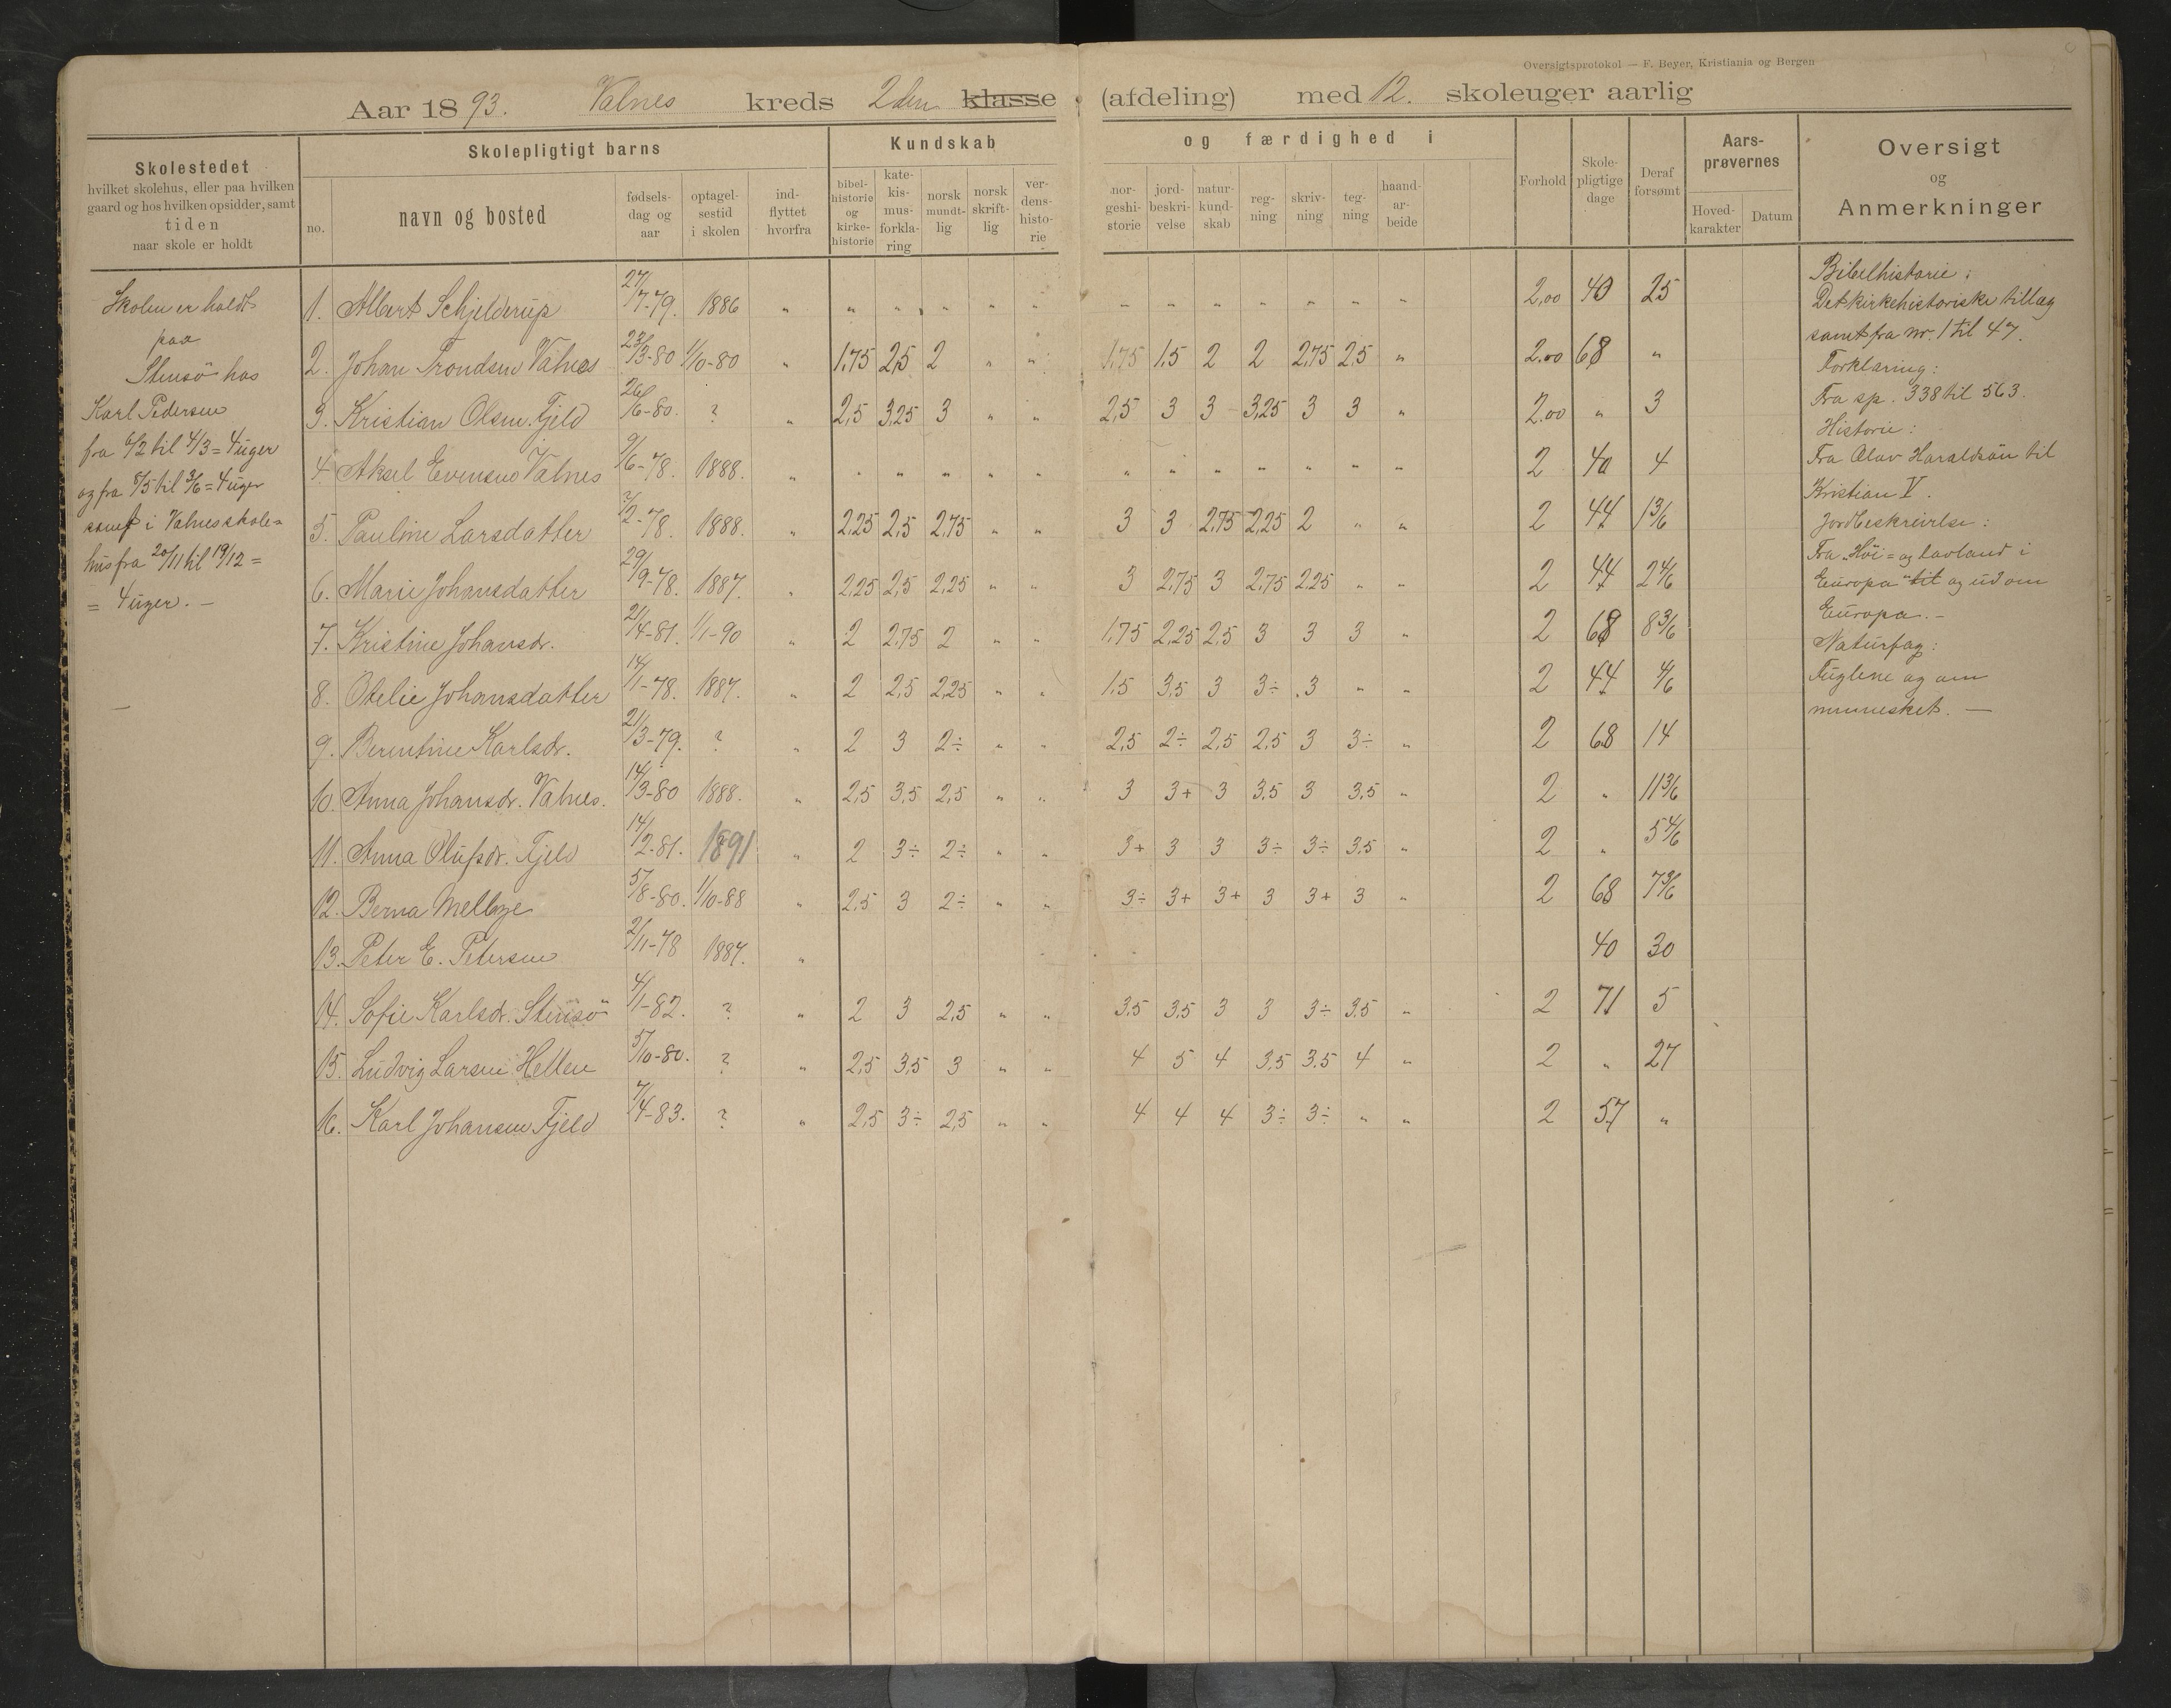 Oversigtsprotokol — F. Beyer, Kristiania og Bergen
Aar 1893. Valnes kreds 2den klasse (afdeling) med 12. skoleuger aarlig
Skolestedet
hvilket skolehus, eller paa hvilken
gaard og hos hvilken opsidder, samt
tiden
naar skole er holdt
Skolepligtigt barns
no.
navn og bosted
fødsels-
dag og
aar
optagel-
sestid
i skolen
ind-
flyttet
hvorfra
Kundskab og færdighed i
bibel-
historie
og
kirke-
historie
kate-
kis-
mus-
forkla-
ring
norsk
mundt-
lig
norsk
skrift-
lig
ver-
dens-
histo-
rie
nor-
geshi-
storie
jord-
beskri-
velse
natur-
kund-
skab
reg-
ning
skriv-
ning
teg-
ning
haand-
ar-
beide
Forhold
Skole-
pligtige
dage
Deraf
forsømt
Aars-
prøvernes
Hoved-
karakter
Datum
Oversigt
og
Anmerkninger
Skolen er holdt
paa
Stensö hos
Karl Pedersen
fra 6/2 til 4/3 = 4 uger
og fra 8/5 til 3/6 = 4 uger
samt i Valnes skole=
hus fra 20/11 til 19/12 =
= 4 uger. —
1. Albert Schjelderup 27/7-79. 1886 " " " " " " " " " " " " " 2,00 40 25
2. Johan Trondsen Valnes 23/3-80 1/10-80 " 1,75 2,5 2 " " 1,75 1,5 2 2 2,75 2,5 " 2,00 68 "
3. Kristian Olsen Fjeld 26/6-80. ? " 2,5 3,25 3 " " 2,5 3 3 3,25 3 3 " 2,00 " 3
4. Aksel Evensen Valnes 9/6-78. 1888. " " " " " " " " " " " " " 2 40 4
5. Pauline Larsdatter 2/2-78. 1888. " 2,25 2,5 2,75 " " 3 3 2,75 2,25 2 " " 2 44 1 3/6
6. Marie Johansdatter 29/9-78. 1887. " 2,25 2,5 2,25 " " 3 2,75 3 2,75 2,25 " " 2 44 2 4/6
7. Kristine Johansdr. 21/4-81. 1/1-90 " 2 2,75 2 " " 1,75 2,25 2,5 3 3 3 " 2 68 8 3/6
8. Otelie Johansdatter 14/1-78. 1887. " 2 2,5 2,25 " " 1,5 3,5 3 3÷ 3 " " 2 44 4/6
9. Berntine Karlsdr. 21/3-79. ? " 2 3 2÷ " " 2,5 2÷ 2,5 2,5 3 3÷ " 2 68 14
10. Anna Johansdr. Valnes. 14/3-80 1888. " 2,5 3,5 2,5 " " 3 3+ 3 3,5 3 3,5 " 2 " 11 3/6
11. Anna Olufsdr. Fjeld 14/2-81. 1891 " 2 3÷ 2÷ " " 3+ 3 3 3÷ 3÷ 3,5 " 2 " 5 4/6
12. Berna Mellbye 5/8-80. 1/10-88 " 2,5 3 2÷ " " 3÷ 3+ 3+ 3 3+ 3 " 2 68 7 3/6
13. Peter E. Petersen 2/11-78 1887. " 40 30
14. Sofie Karlsdr. Stensö 4/1-82. ? " 2 3 2,5 " " 3,5 3,5 3 3 3÷ 3,5 " 2 71 5
15. Ludvig Larsen Hellen 5/10-80. ? " 2,5 3,5 3 " " 4 5 4 3,5 3,5 4 " 2 " 27
16. Karl Johansen Fjeld 7/4-83. ? " 2,5 3÷ 2,5 " " 4 4 4 3÷ 3÷ " " 2 57 "
Bibelhistorie:
Det kirkehistoriske tillæg
samt fra nr. 1 til 47.
Forklaring:
Fra sp. 338 til 563.
Historie:
Fra Olav Haraldsön til
Kristian V.
Jordbeskrivelse:
Fra „Höi= og lavland i
Europa" til og ud om
Europa. —
Naturfag:
Fuglene og om
mennesket. —